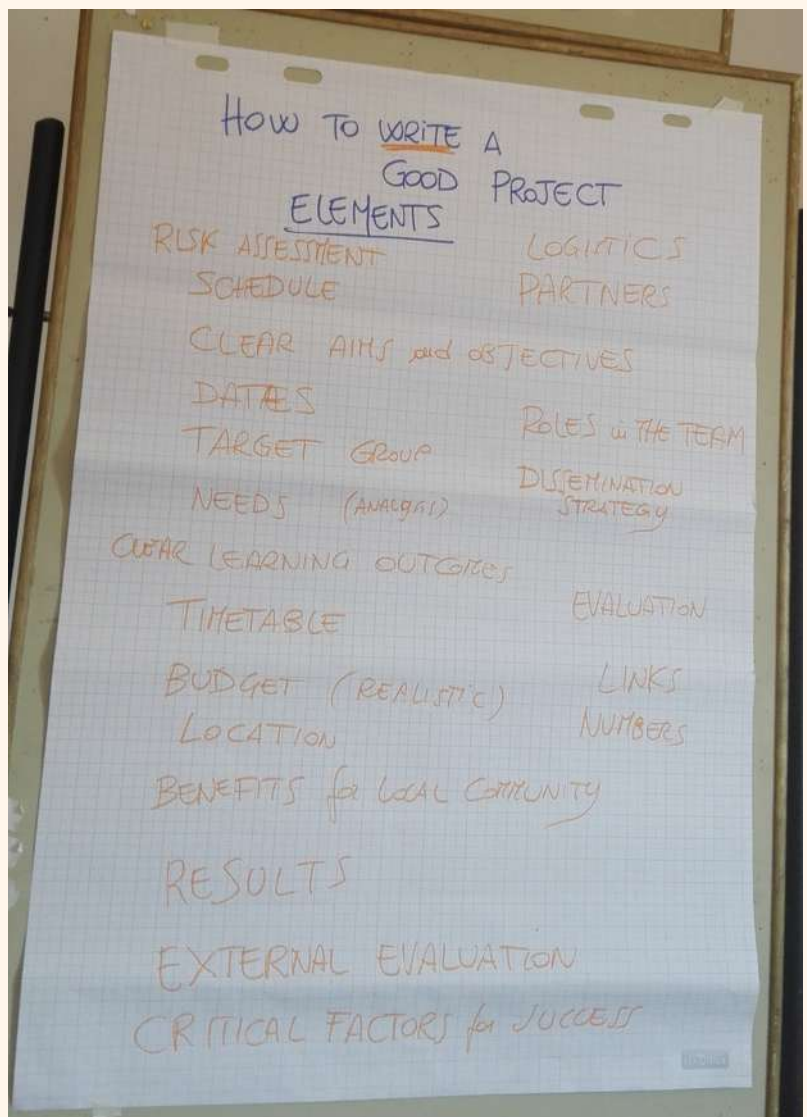 HOW TO WRITE A
GOOD PROJECT
ELEMENTS
RISK ASSESSMENT
LOGISTICS
SCHEDULE
PARTNERS
CLEAR AIMS and OBJECTIVES
DATES
ROLES in THE TERM
TARGET GROUP
DISSEMINATION
STRATEGY
NEEDS (ANALYSIS)
CLEAR LEARNING OUTCOMES
EVALUATION
TIMETABLE
BUDGET (REALISTIC)
LINKS
LOCATION
NUMBERS
BENEFITS for LOCAL COMMUNITY
RESULTS
EXTERNAL EVALUATION
CRITICAL FACTORS for SUCCESS